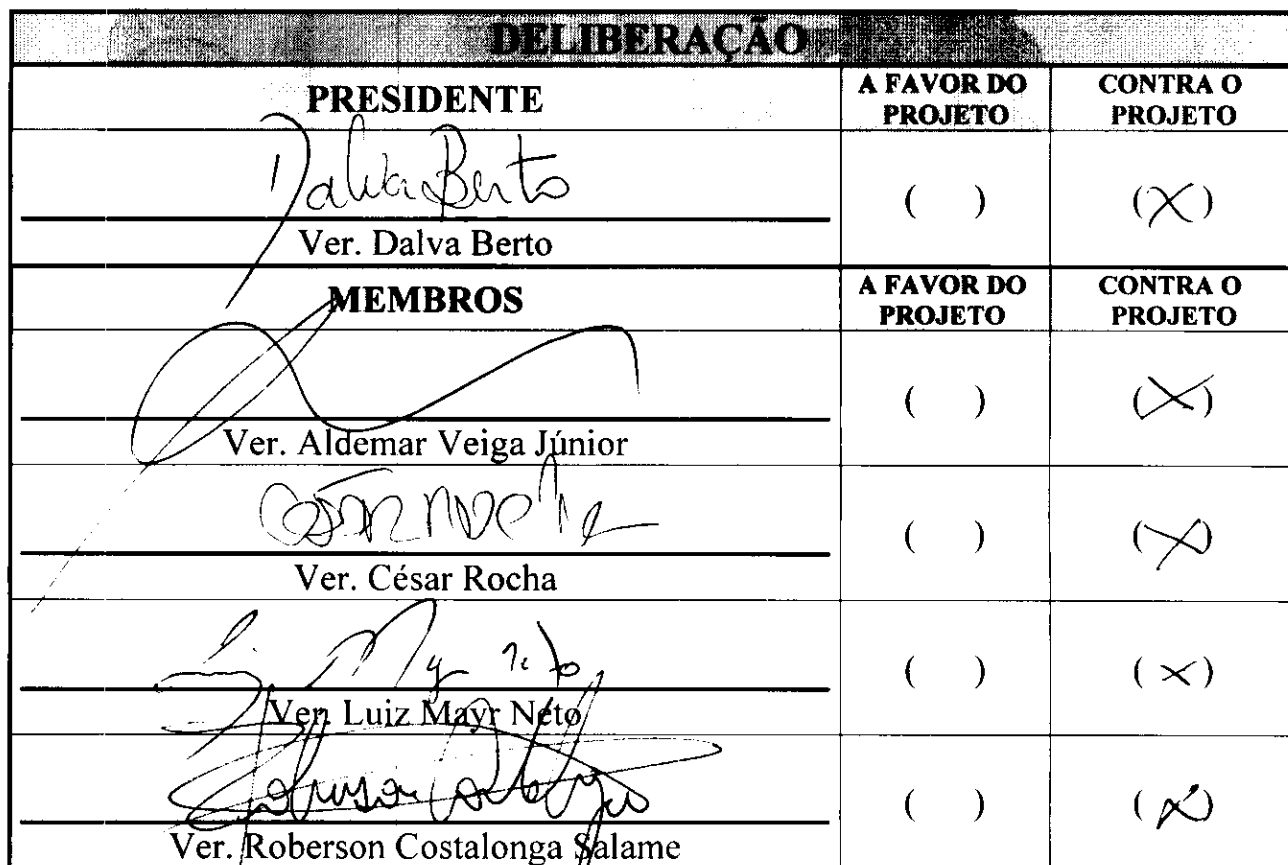 DELIBERAÇÃO
PRESIDENTE A FAVOR DO PROJETO CONTRA O PROJETO
Dalva Berto
Ver. Dalva Berto ( ) (X)
MEMBROS A FAVOR DO PROJETO CONTRA O PROJETO
Ver. Aldemar Veiga Júnior ( ) (X)
Ver. César Rocha ( ) (X)
Ver. Luiz Mayr Neto ( ) (X)
Ver. Roberson Costalonga Salame ( ) (X)